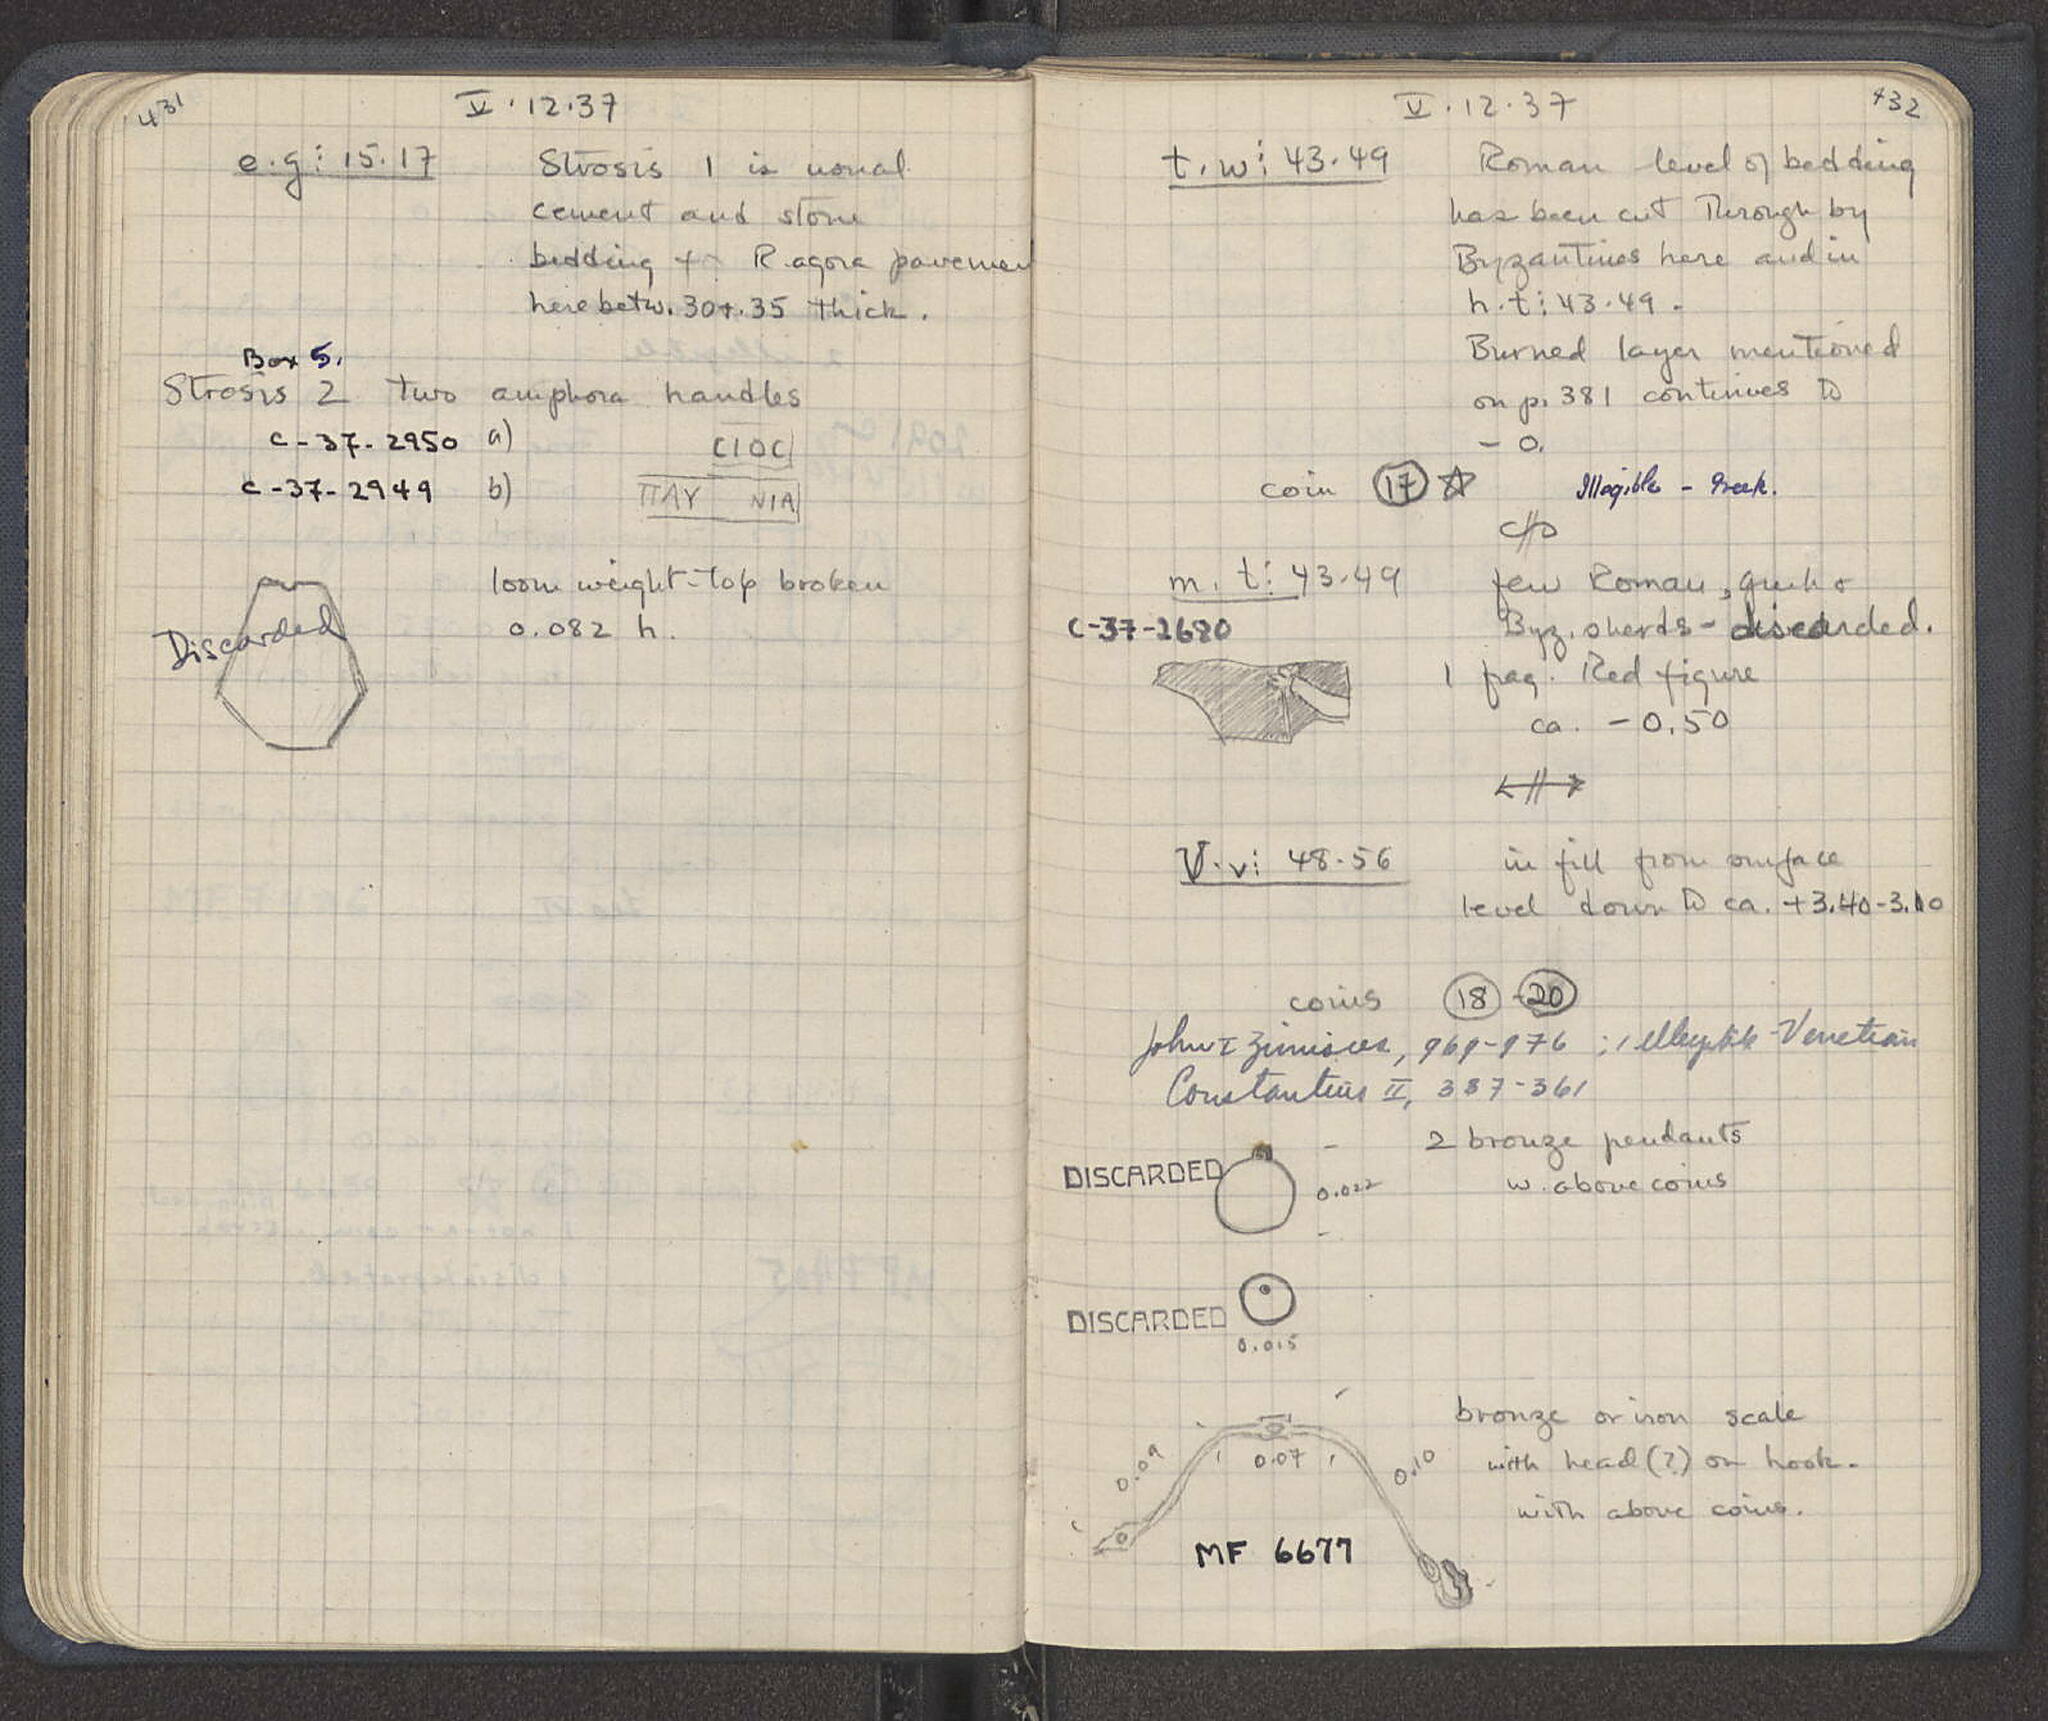 431
V.12.37
e.g: 15.17 Strosis 1 is usual
cement and stone
bedding for R. agora pavemen
here betw. .30 + .35 thick.
Box 5.
Strosis 2 two amphora handles
C-37-2950 a) CIOC
C-37-2949 b) ΠΑΥ ΝΙΑ
loom weight - top broken
0.082 h.
Discarded
V.12.37
432
t.w: 43.49 Roman level of bedding
has been cut through by
Byzantines here and in
h.t: 43.49.
Burned layer mentioned
on p. 381 continues to
- 0.
coin 17 ☆ Illegible - Greek.
m.t: 43.49 few Roman, Greek +
C-37-2680 Byz. sherds - discarded.
1 frag. Red figure
ca. - 0.50
V.v: 48.56 in fill from surface
level down to ca. +3.40-3.10
coins 18 - 20
John I Zimisces, 969-976 ; 1 illegible - Venetian
Constantius II, 337-361
- 2 bronze pendants
DISCARDED 0.022 w. above coins
-
DISCARDED
0.015
bronze or iron scale
0.09 0.07 0.10 with head (?) on hook.
with above coins.
MF 6677